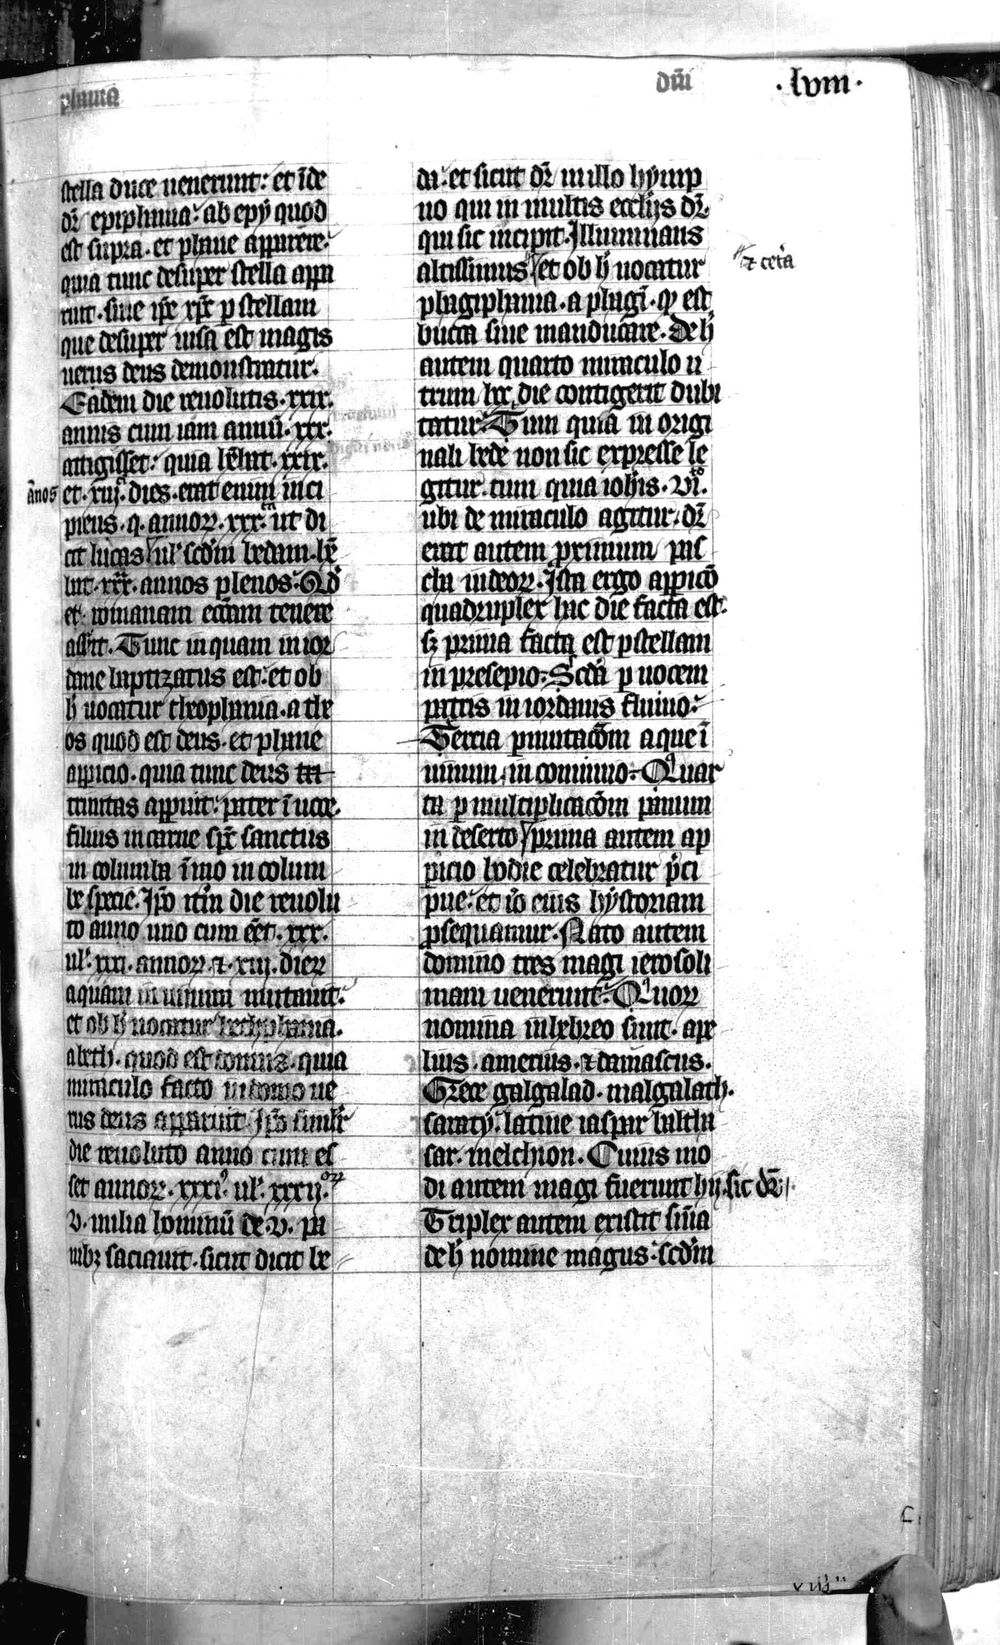 phania
dñi
·lvııı·
stella duce uenerunt: et īde
dr̄ epiphania· ab epy quod
est supra· et phane apparere·
quia tunc desuper stella appa
ruit· siue ip̄e xp̄c p stellam
que desuper uisa est magis
uerus deus demonstratur·
Eadem die reuolutis· xxix·
annis cum iam annū· xxx·
attigisset: quia hēbat· xxix·
ānos et· xiij· dies· erat enim inci
piens· q̄· annoꝝ· xxx· ut di
cit lucas ul' scd'm bedam· hē
bat· xxx· annos plenos·
et romanam ecc̄am tenere
ass̄it· Tunc inquam in ior
dane baptizatus est: et ob
h' uocatur theophania· a the
os quod est deus· et phane
appicio· quia tunc deus
trinitas apparuit: pater ī uoce
filius in carne sp̄c sanctus
in columba īmo in colum
be specie· Ip̄o die reuolu
to anno uno cum eēt· xxx·
ul' xxxi· annoꝝ ⁊· xiij· dieꝝ
aquam in uinum mutauit·
et ob h' uocatur bethphania·
abeth· quod est domus· quia
miraculo facto in domo ue
rus deus apparuit· Ip̄o simil'r
die reuoluto anno cum es
set annoꝝ· xxxi· ul' xxxij·
v· milia hominū de· v· pa
nibꝫ saciauit· sicut dicit be
da: et sicut dr̄ in illo hymp
no qui in multis eccl'ijs dr̄·
qui sic incipit· Illuminans
altissimus et ob h' uocatur
⁊ cet̄a
phagiphania· a phagī· q' est
bucca siue manducare· De h'
autem quarto miraculo u
trum hac die contigerit dubi
tatur· Tum quia in origi
nali bede non sic expresse le
gitur· tum quia ioh'is· vi·
ubi de miraculo agitur· dr̄
erat autem proximum pas
cha iudeoꝝ· Ista ergo appicō
quadruplex hac die facta est·
sꝫ prima facta est p stellam
in presepio· Scd'a p uocem
patris in iordanis fluuio·
Tercia p mutacōm aque ī
uinum in conuiuio· Quar
ta p multiplicacōm panum
in deserto prima autem ap
picio hodie celebratur p'ci
pue· et iō eius hystoriam
ꝓsequamur· Nato autem
domino tres magi ierosoli
mam uenerunt· Quoꝝ
nomina in hebreo sunt· ape
lius· amerius· ⁊ damascus·
Grece galgalad· malgalath·
saraty· latine iaspar baltha
sar· melchion· Cuius mo
di autem magi fuerunt hij· sic dr̄·
Triplex autem existit s'nia
de h' nomine magus· scd'm